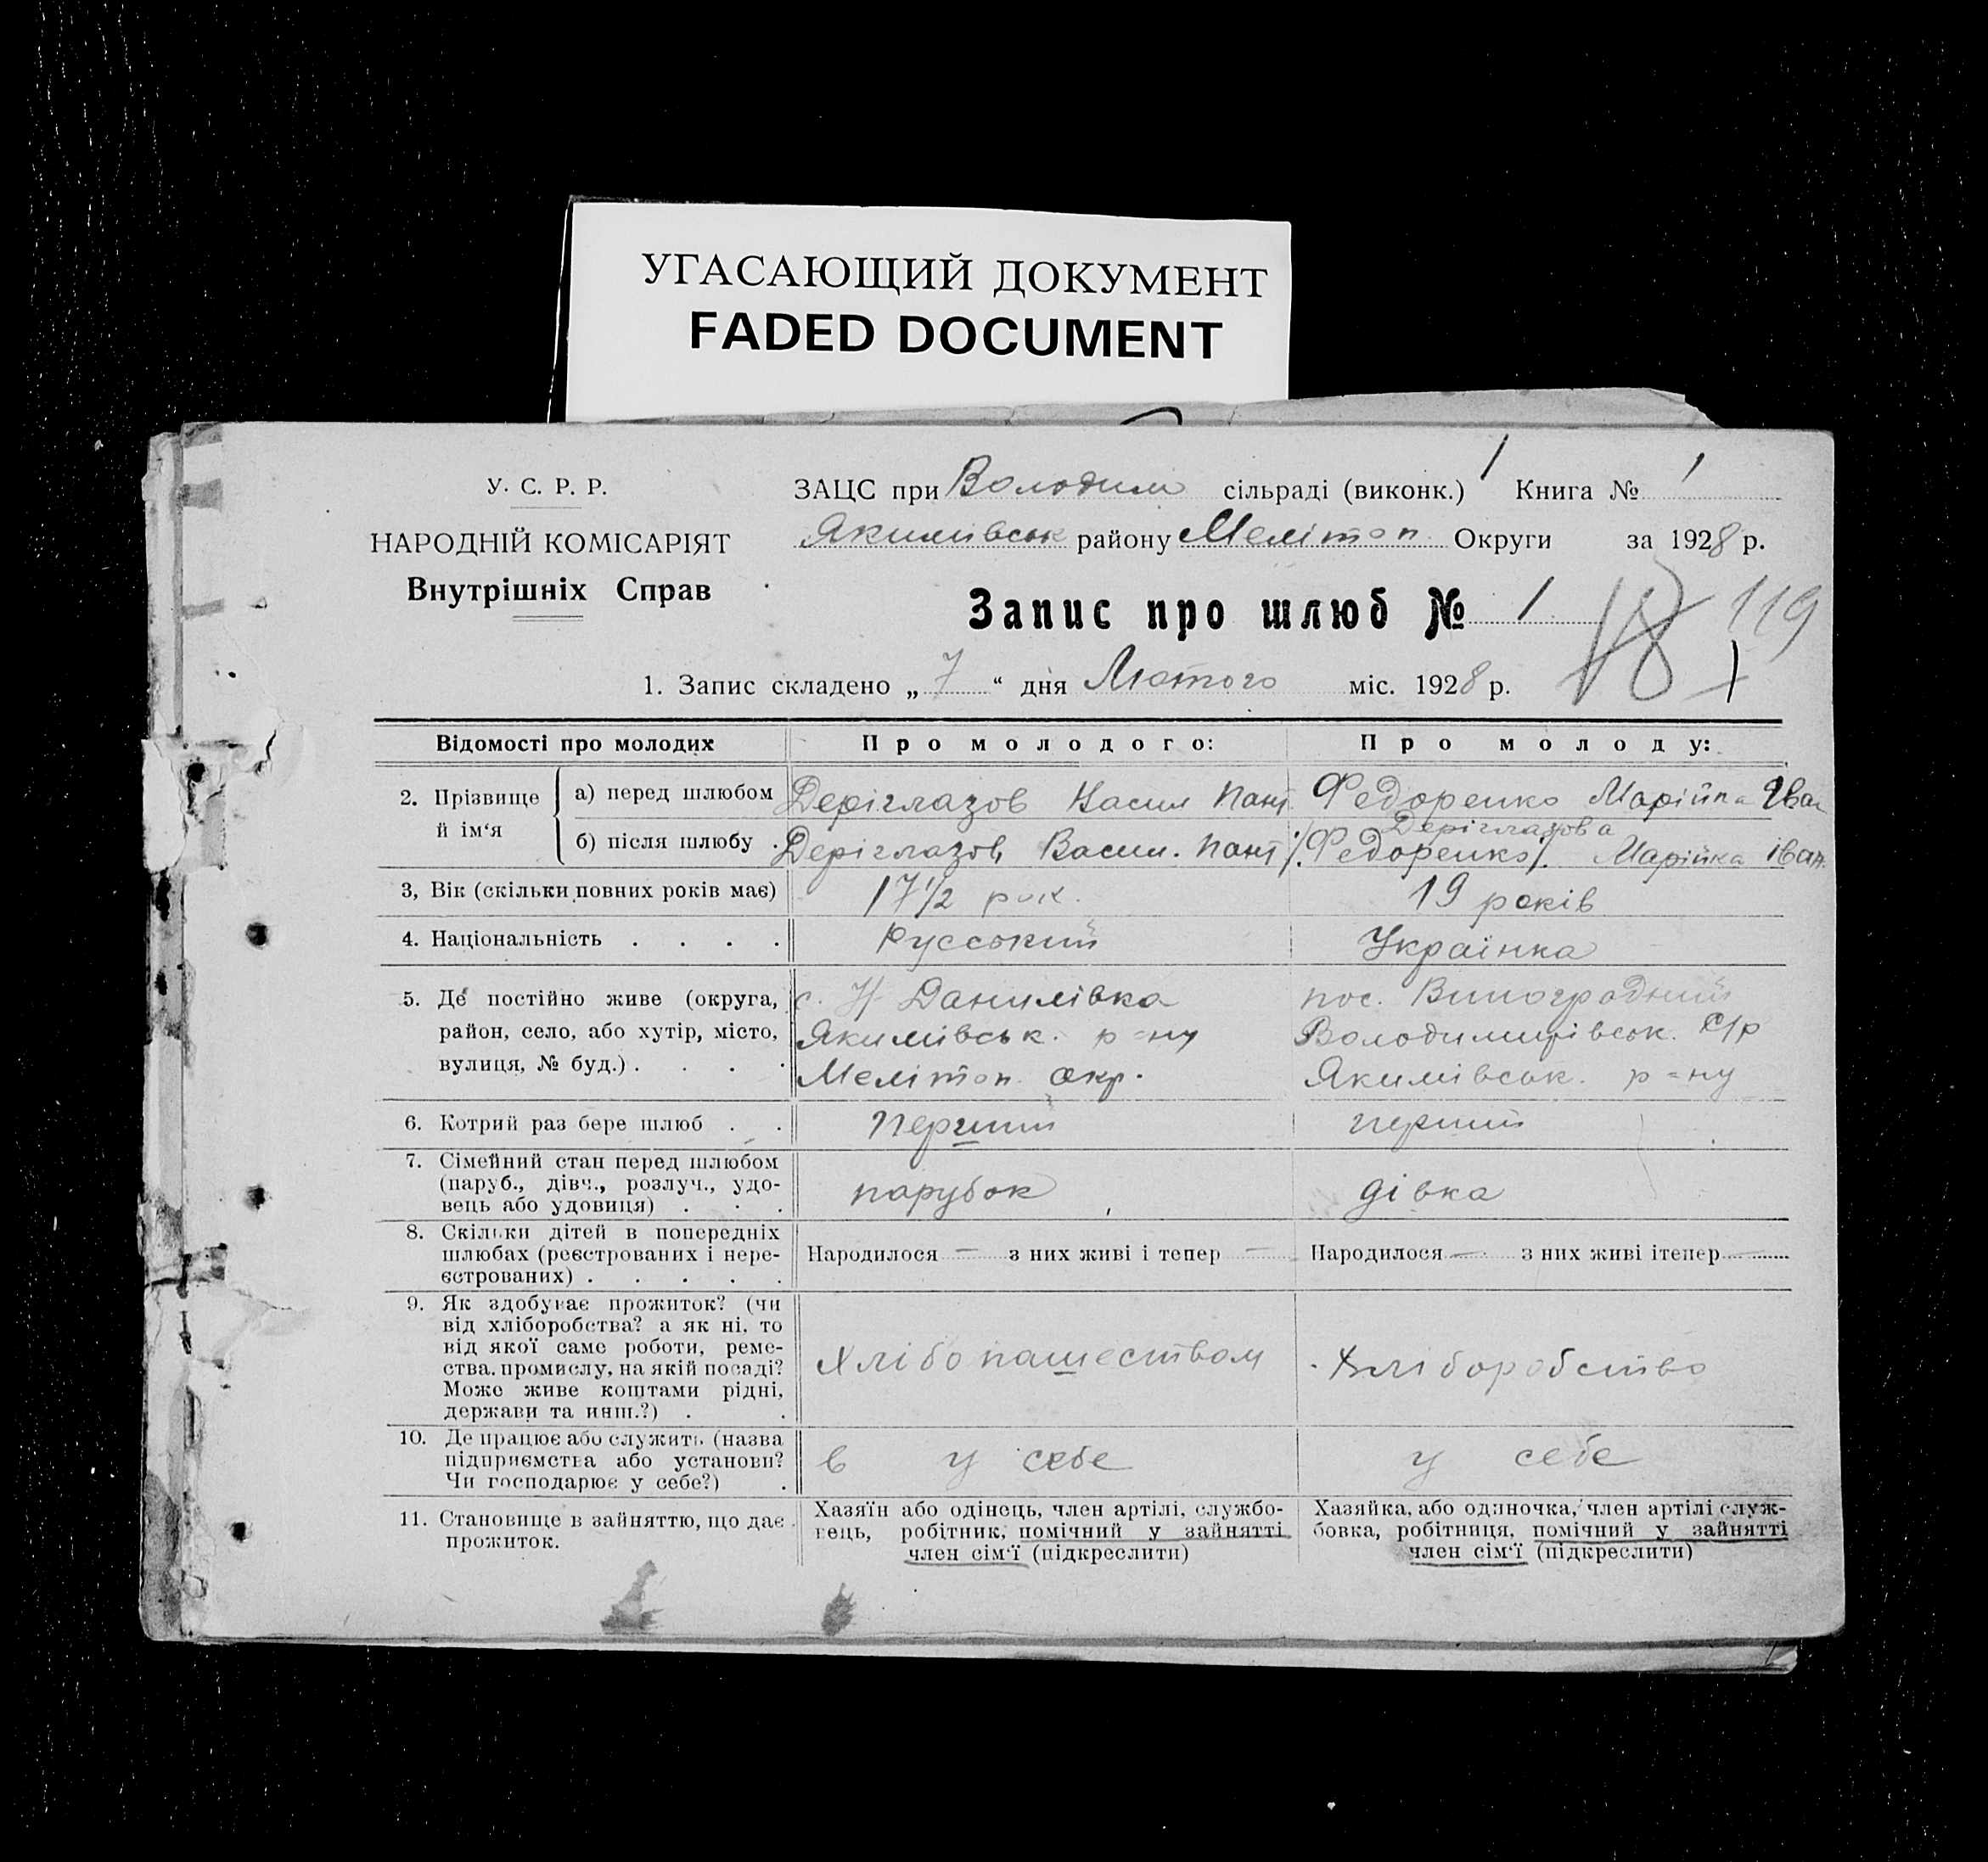 УГАСАЮЩИЙ ДОКУМЕНТ
FADED DOCUMENT
У. С. Р. Р.
НАРОДНІЙ КОМІСАРІЯТ
Внутрішніх Справ
ЗАЦС при Володим сільраді (виконк.) 1 Книга № 1
Якимівськ району Мелітоп. Округи за 1928 р.
Запис про шлюб № 1
18 119
1
1. Запис складено „ 7 “ дня Лютого міс. 1928 р.
Відомості про молодих Про молодого: Про молоду:
2. Прізвище й ім‘я
а) перед шлюбом Деріглазов Васил Пант. Федоренко Марійка Іван
Деріглазова
б) після шлюбу . Деріглазов Васил. Пант /Федоренко/. Марійка Іван.
3, Вік (скільки повних років має) 17 1/2 рок. 19 років
4. Національність . . . . Русський Українка
5. Де постійно живе (округа, с. Н Данилівка пос. Виноградний
район, село, або хутір, місто, Якимівськ. р=ну Володимирівськ. С/р
вулиця, № буд.) . . . . Мелітоп. окр. Якимівськ. р=ну
6. Котрий раз бере шлюб . . Перший перший
7. Сімейний стан перед шлюбом
(паруб., дівч., розлуч., удо- парубок дівка
вець або удовиця) . . .
8. Скільки дітей в попередніх
шлюбах (реєстрованих і нере- Народилося — з них живі і тепер — Народилося — з них живі ітепер —
єстрованих) . . . . .
9. Як здобуває прожиток? (чи
від хліборобства? а як ні, то
від якої саме роботи, реме-
ства, промислу, на якій посаді? Хлібопашеством Хліборобство
Може живе коштами рідні,
держави та инш.?) . .
10. Де працює або служить (назва
підприємства або установи? в у себе у себе
Чи господарює у себе?) .
11. Становище в зайняттю, що дає
прожиток.
Хазяїн або одінець, член артілі, службо-
вець, робітник, помічний у зайнятті
член сім‘ї (підкреслити)
Хазяйка, або одиночка, член артілі служ-
бовка, робітниця, помічний у зайнятті
член сім‘ї (підкреслити)